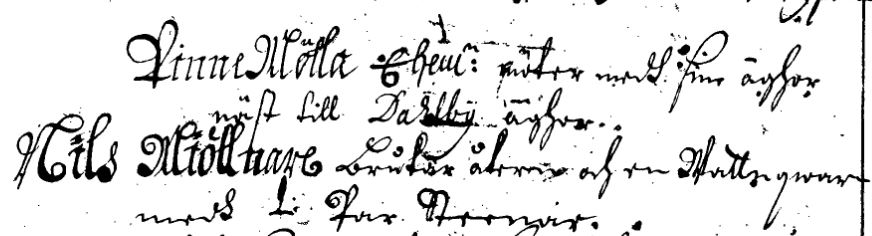 Pinne Mölla Ehem: möter medh sine äghor
näst till Dahlby äghor.
Nils Miöllnare brukar åkeren och en Wattnqwarn
medh 1 Par Steenar.